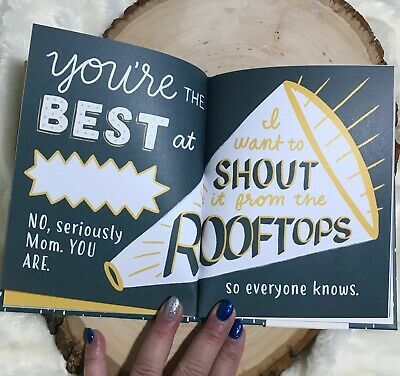 you're THE
BEST at
NO, seriously
Mom. YOU
ARE.
I
want to
SHOUT
it from the
ROOFTOPS
so everyone knows.